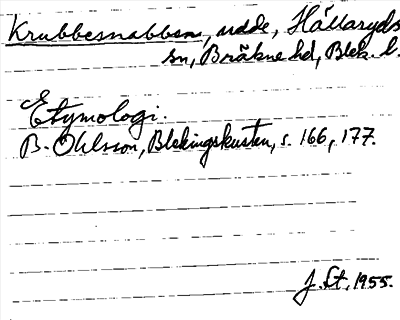 Krubbesnabben, udde, Hällaryds
sn, Bräkne hd, Blek. l.
Etymologi.
B. Ohlsson, Blekingskusten, s. 166, 177.
J. St, 1955.